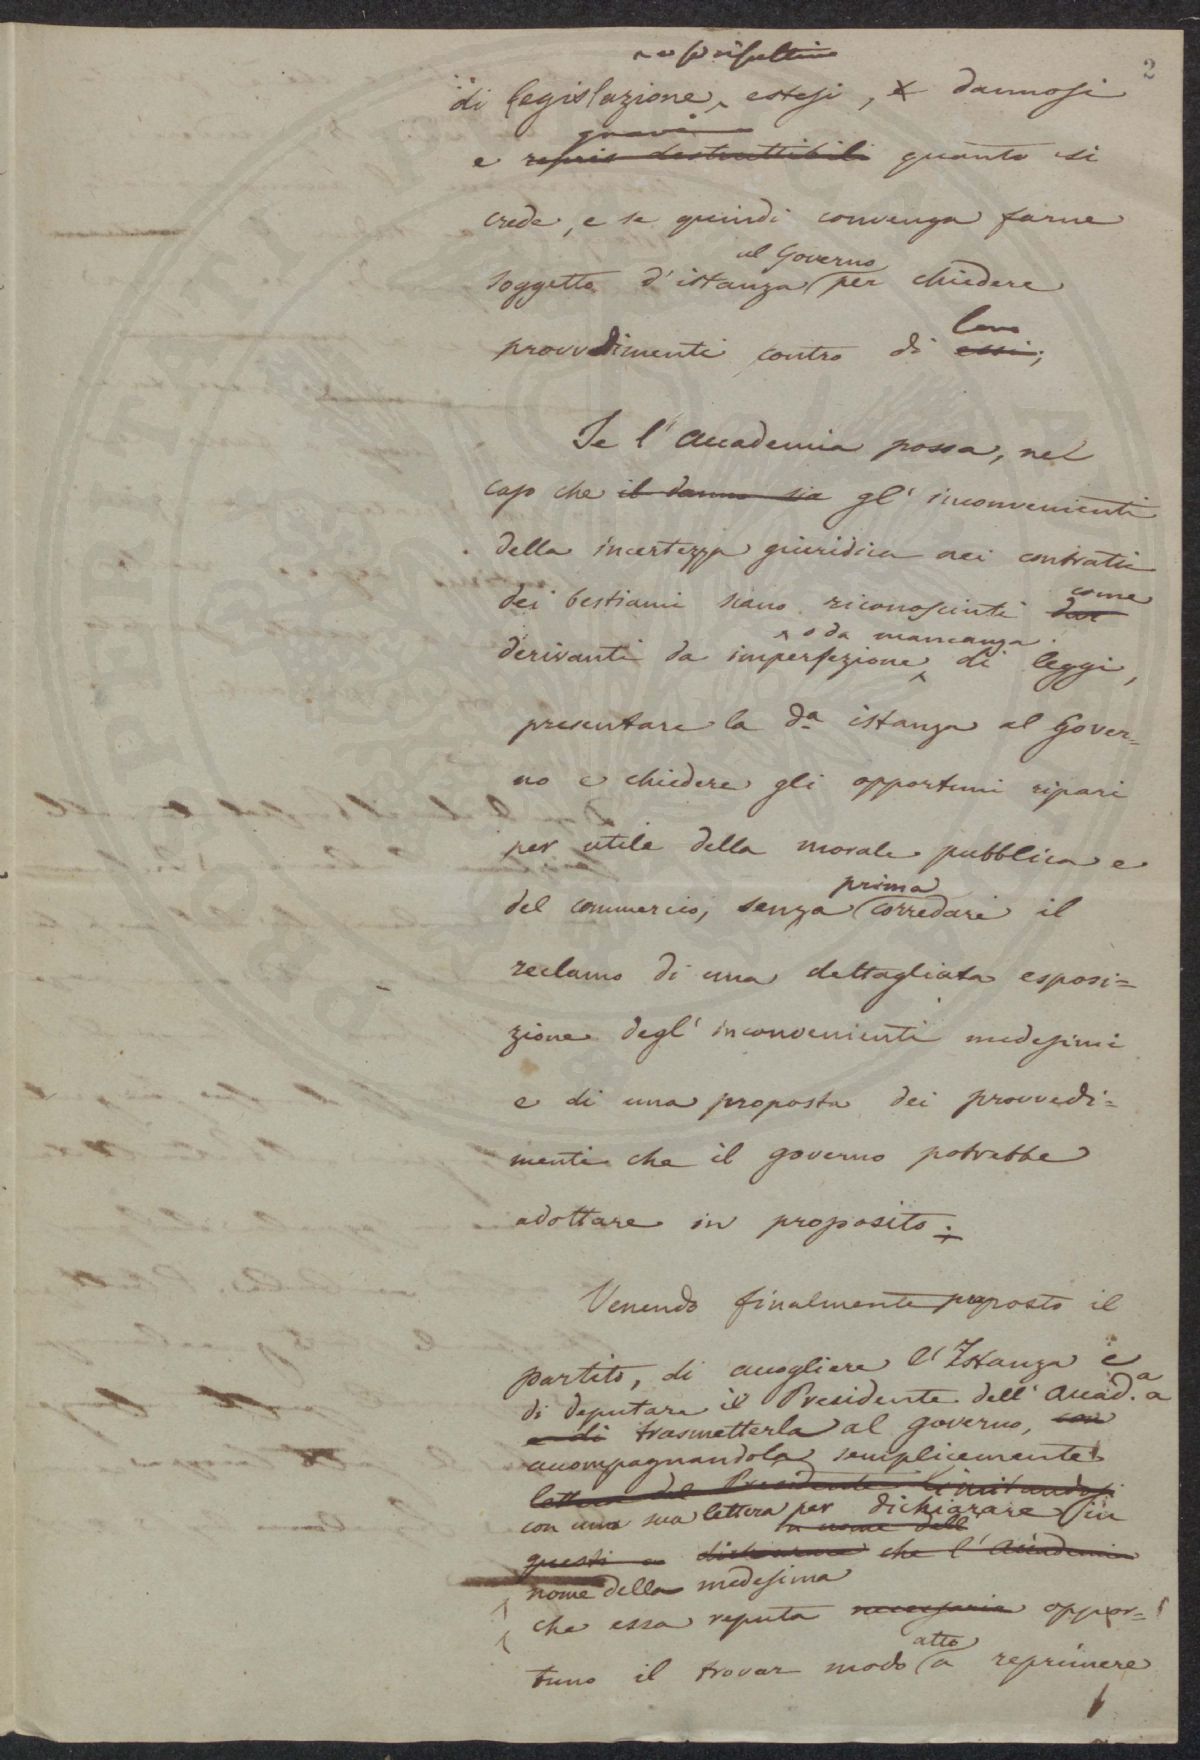 2
di legislazione, estesi, dannosi
gravi
e destruttibili quanto si
crede, e se quindi convenga farne
al Governo
soggetto d'istanza per chiedere
loro
provvedimenti contro di essi;
Se l'Accademia possa, nel
caso che il danno sia gl'inconvenienti
della incertezza giuridica nei contratti
come
dei bestiami siano riconosciuti
o da mancanza
derivanti da imperfezione di leggi,
presentare la da istanza al Gover=
no e chiedere gli opportuni ripari
per utile della morale pubblica e
prima
del commercio, senza corredare il
reclamo di una dettagliata esposi=
zione degl'inconvenienti medesimi
e di una proposta dei provvedi=
menti che il governo potrebbe
adottare in proposito;
Venendo finalmente proposto il
partito, di accogliere l'Istanza e
di deputare il Presidente dell'Accad.a a
e di trasmetterla al governo, con
accompagnandola semplicemente
lettera del Presidente limitandosi
con una sua lettera per dichiarare in
a nome dell'
questi a dichiarare che l'Accademia
nome della medesima
che essa reputa necessario oppor=
atto
tuno il trovar modo a reprimere